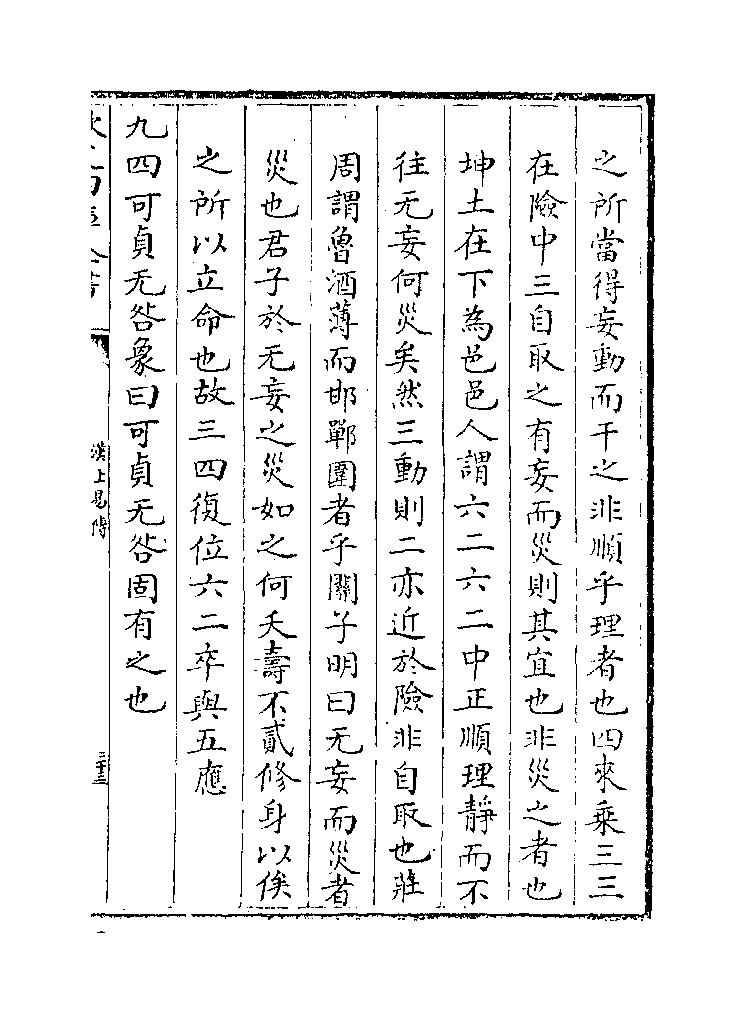 之所當得妄動而干之非順乎理者也四來乗三三
在險中三自取之有妄而災則其宜也非災之者也
坤土在下為邑邑人謂六二六二中正順理靜而不
往无妄何災矣然三動則二亦近於險非自取也莊
周謂魯酒薄而邯鄲圍者乎關子明曰无妄而災者
災也君子於无妄之災如之何夭壽不貳修身以俟
之所以立命也故三四復位六二卒與五應
九四可貞无咎象曰可貞无咎固有之也
漢上易傳
二十三